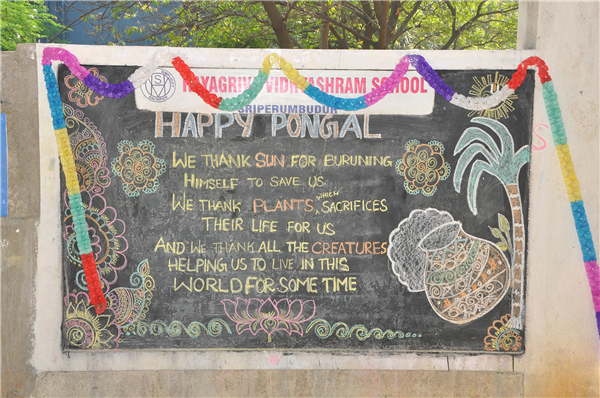 HAYAGRIVA VIDHYASHRAM SCHOOL
SRIPERUMBUDUR
HAPPY PONGAL
WE THANK SUN FOR BURUNING
HIMSELF TO SAVE US.
WE THANK PLANTS, WHICH SACRIFICES
THEIR LIFE FOR US
AND WE THANK ALL THE CREATURES
HELPING US TO LIVE IN THIS
WORLD FOR SOME TIME